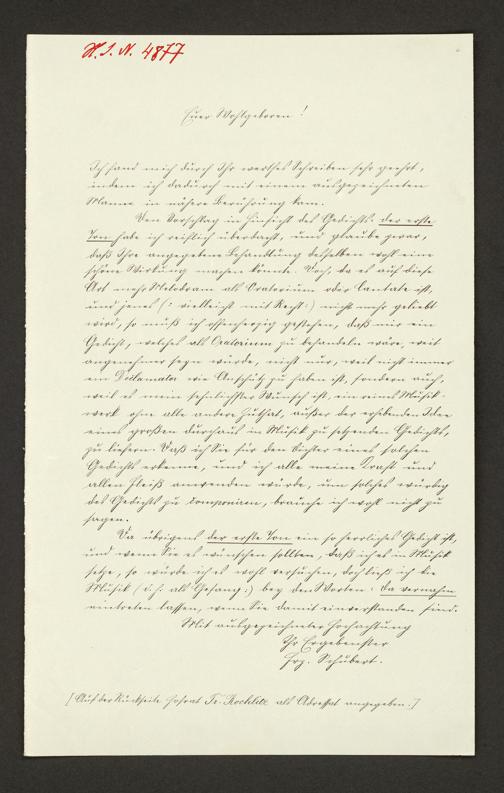 H. I. N. 4877
Euer Wohlgeboren!
Ich fand mich durch Ihr werthes Schreiben sehr geehrt,
indem ich dadurch mit einem ausgezeichneten
Manne in nähere Berührung kam.
Den Vorschlag in Hinsicht des Gedichts: der erste
Ton habe ich reiflich überdacht, und glaube zwar,
daß Ihre angegebene Behandlung desselben wohl eine
schöne Wirkung machen könnte. Doch, da es auf diese
Art mehr Melodram als Oratorium oder Cantate ist,
und jenes (: vielleicht mit Recht :) nicht mehr geliebt
wird, so muß ich offenherzig gestehen, daß mir ein
Gedicht, welches als Oratorium zu behandeln wäre, weit
angenehmer seyn würde, nicht nur, weil nicht immer
ein Declamator wie Anschütz zu haben ist, sondern auch,
weil es mein sehnlichster Wunsch ist, ein reines Musik-
werk ohne alle andere Zuthat, außer der erhebenden Idee
eines großen durchaus in Musik zu setzenden Gedichts,
zu liefern. Daß ich Sie für den Dichter eines solchen
Gedichts erkenne, und ich alle meine Kraft und
allen Fleiß anwenden würde, um solches würdig
des Gedichts zu componiren, brauche ich wohl nicht zu
sagen.
Da übrigens der erste Ton ein so herrliches Gedicht ist,
und wenn Sie es wünschen sollten, daß ich es in Musik
setze, so würde ich es wohl versuchen, doch ließ ich die
Musik (: d. h. als Gesang :) bey den Worten: da vernahm
eintreten lassen, wenn Sie damit einverstanden sind.
Mit ausgezeichneter Hochachtung
Ihr Ergebenster
Frz. Schubert.
[Auf der Rückseite Hofrat Fr. Rochlitz als Adressat angegeben.]